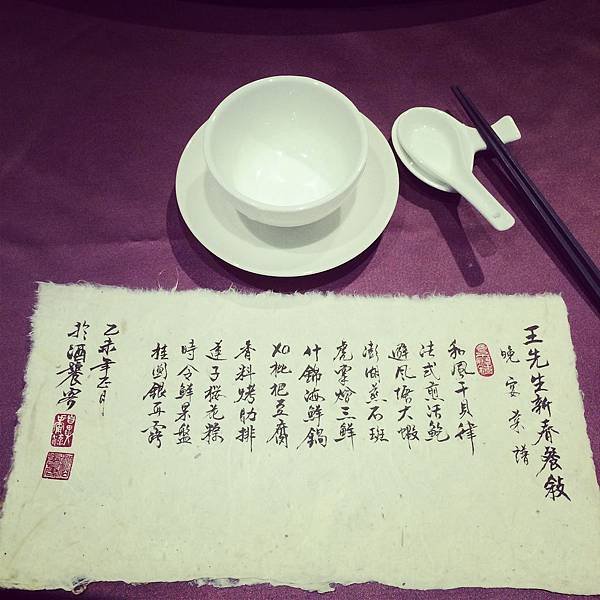 王先生新春餐敘
晚宴菜譜
和風干貝律
法式煎活鮑
避風塘大蝦
澎湖蒸石斑
虎掌燴三鮮
什錦海鮮鍋
如枇杷豆腐
香料烤肋排
蓮子櫻花糕
時令鮮果盤
桂圓銀耳露
乙未年正月
於酒